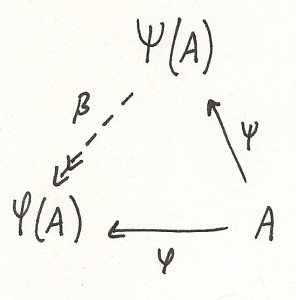 Ψ(A)
β
Ψ
φ(A)
A
φ